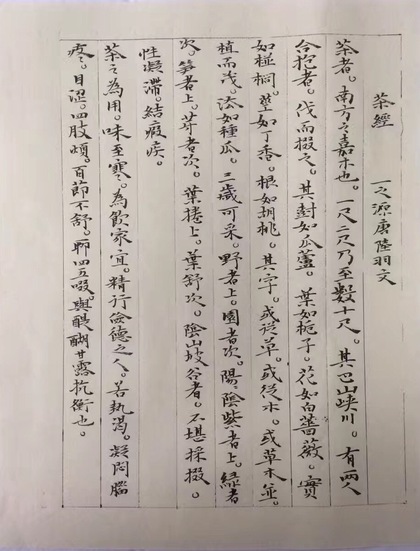 茶經
一之源唐陸羽文
茶者。南方之嘉木也。一尺二尺乃至數十尺。其巴山峽川。有兩人
合抱者。伐而掇之。其封如瓜蘆。葉如栀子。花如白薔薇。實
如栟榈。莖如丁香。根如胡桃。其字。或從草。或從木。或草木並。
植而茂。法如種瓜。三歲可采。野者上。園者次。陽陰紫者上。綠者
次。笋者上。芽者次。葉捲上。葉舒次。陰山坡谷者。不堪採掇。
性凝滯。結瘕疾。
茶之為用。味至寒。為飲家宜。精行儉德之人。若熱渴。凝悶腦
疼。目澀。四肢煩。百節不舒。聊四五啜。與醍醐甘露抗衡也。